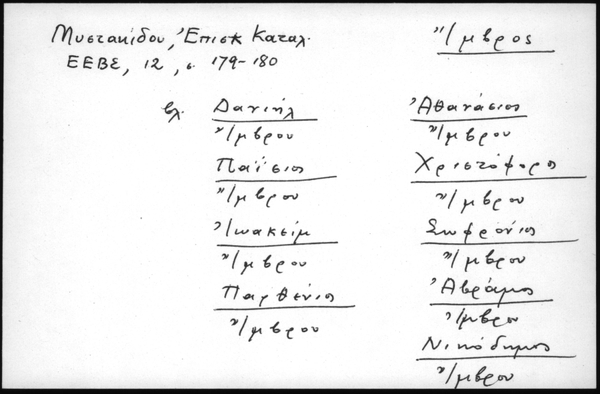 Μυστακίδου, Ἐπισκ Καταλ.
ΕΕΒΣ, 12, σ. 179-180
Ἴμβρος
βλ. Δανιήλ
Ἴμβρου
Παΐσιος
Ἴμβρου
Ἰωακείμ
Ἴμβρου
Παρθένιος
Ἴμβρου
Ἀθανάσιος
Ἴμβρου
Χριστόφορος
Ἴμβρου
Σωφρόνιος
Ἴμβρου
Ἀβράμιος
Ἴμβρου
Νικόδημος
Ἴμβρου